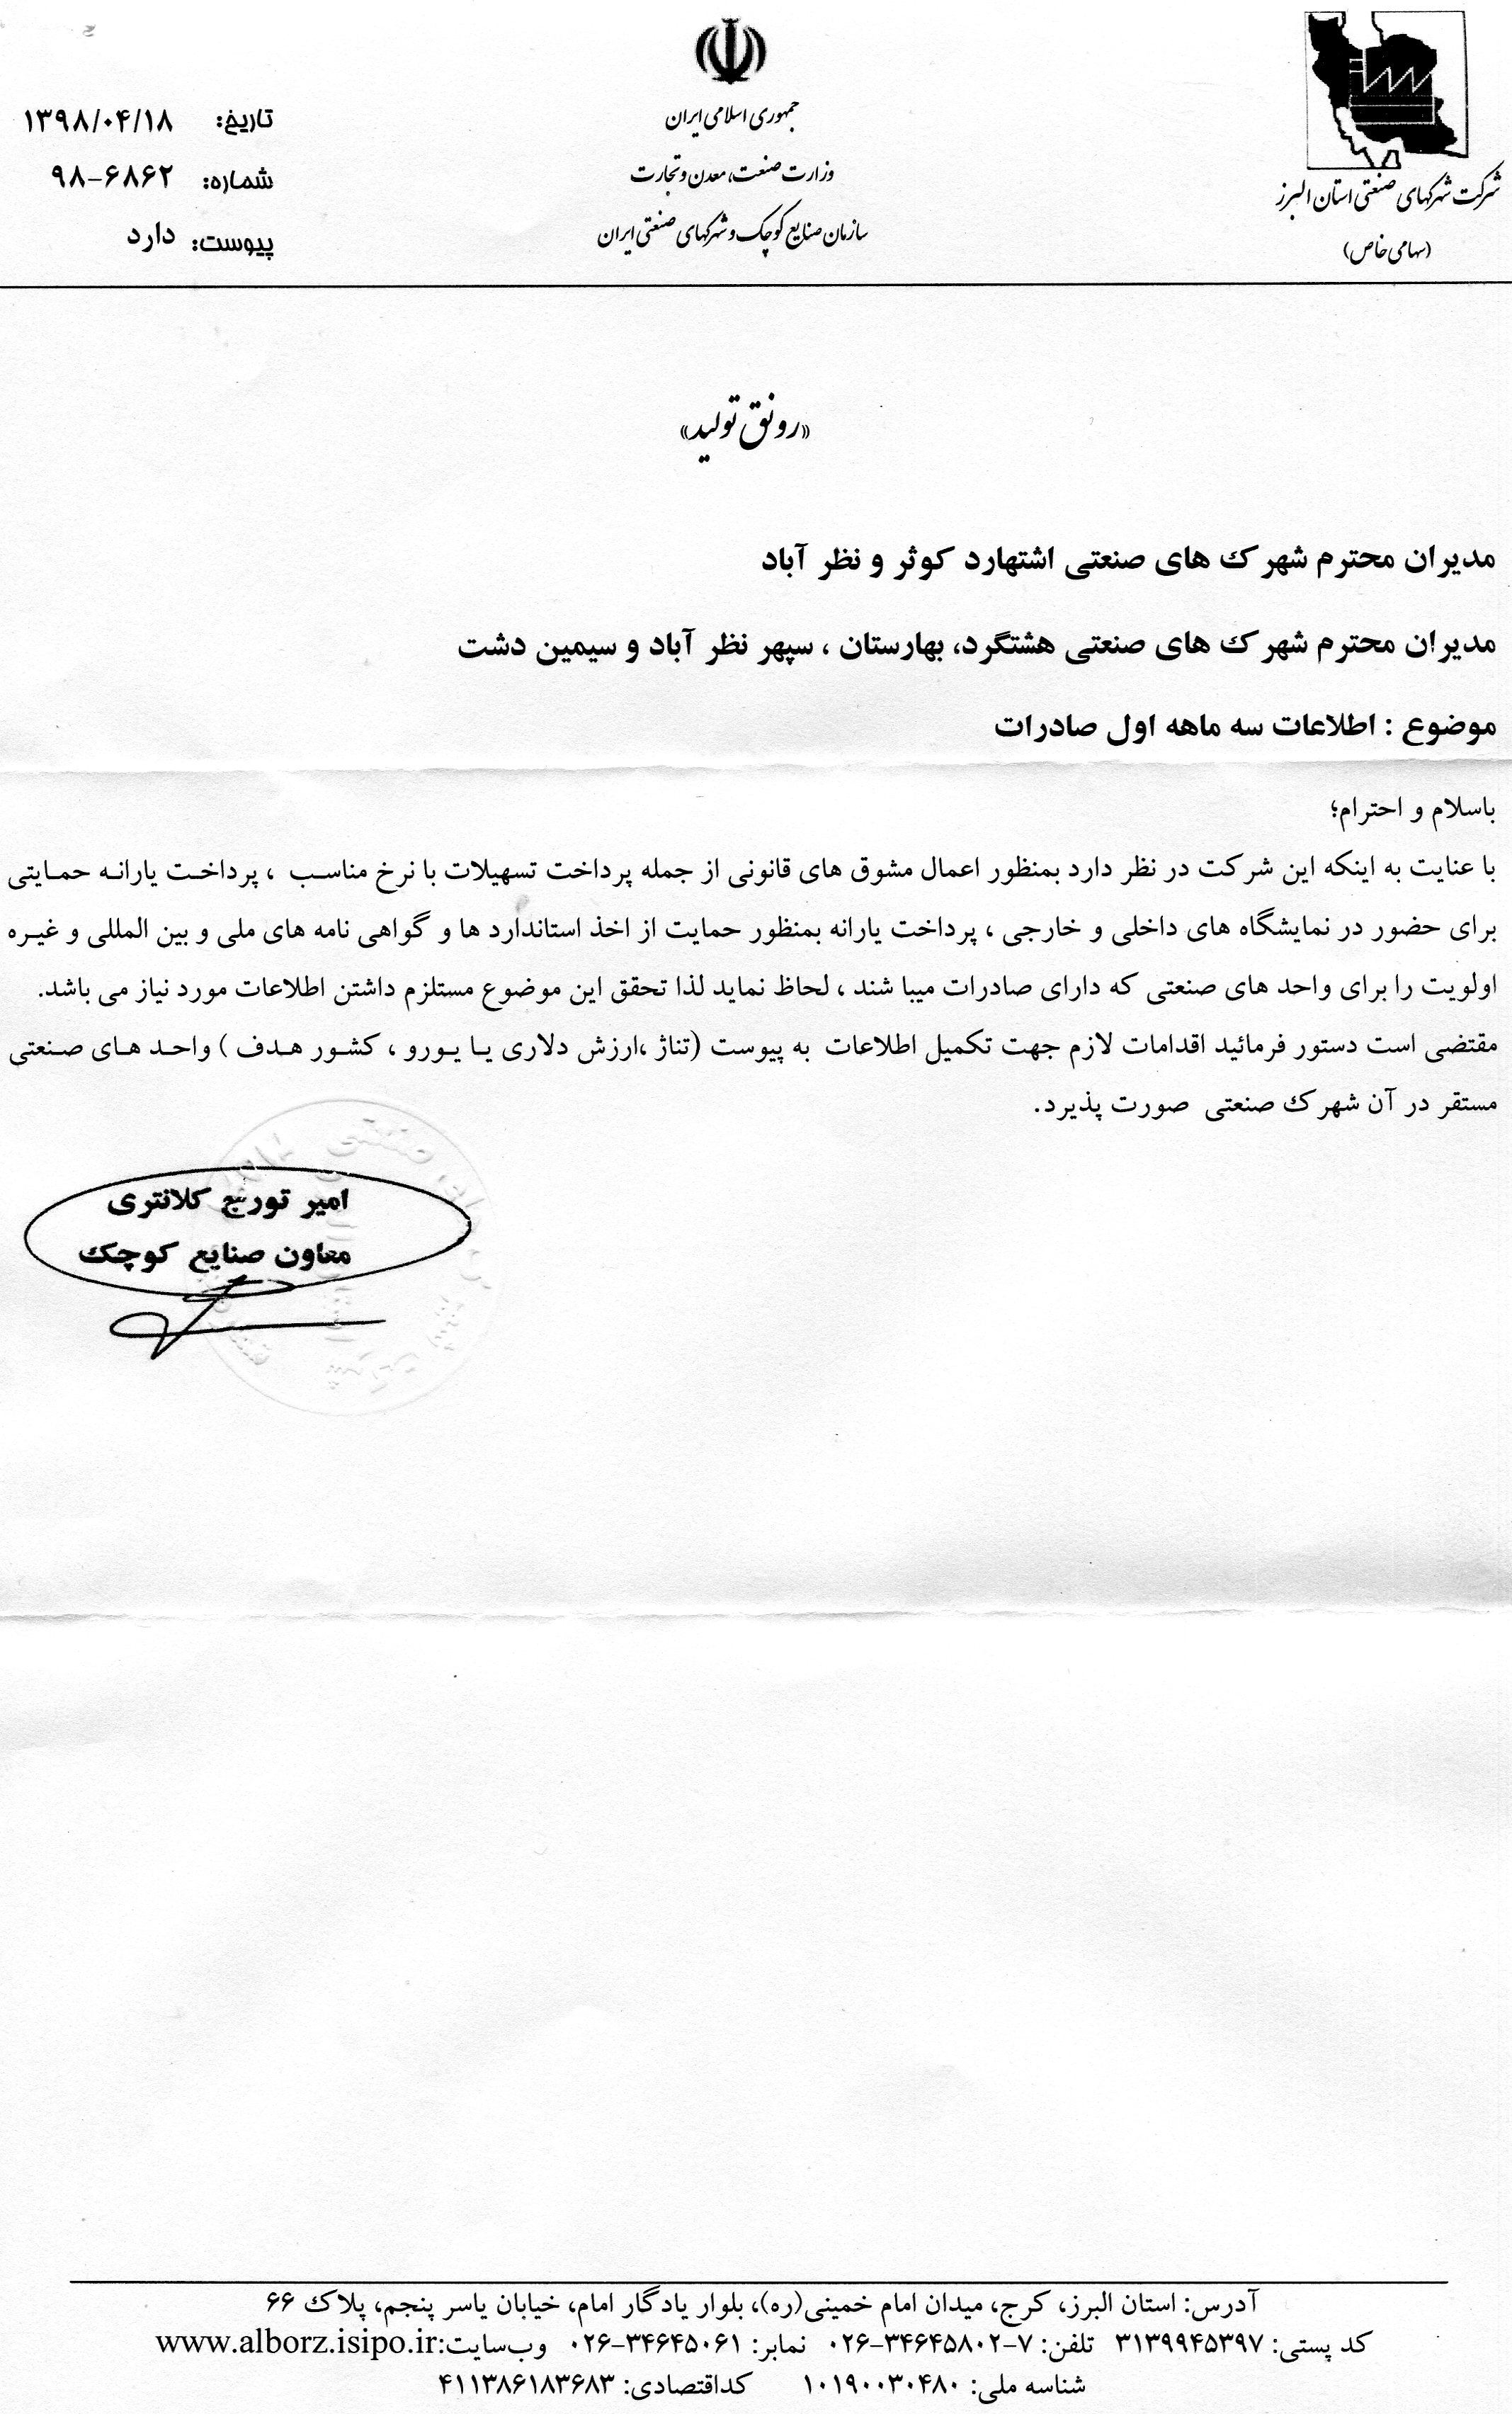 شرکت شهرکهای صنعتی استان البرز
(سهامی خاص)
جمهوری اسلامی ایران
وزارت صنعت، معدن و تجارت
سازمان صنایع کوچک و شهرکهای صنعتی ایران
تاریخ: ۱۳۹۸/۰۴/۱۸
شماره: ۹۸-۶۸۶۲
پیوست: دارد
«رونق تولید»
مدیران محترم شهرک های صنعتی اشتهارد کوثر و نظر آباد
مدیران محترم شهرک های صنعتی هشتگرد، بهارستان ، سپهر نظر آباد و سیمین دشت
موضوع : اطلاعات سه ماهه اول صادرات
باسلام و احترام؛
با عنایت به اینکه این شرکت در نظر دارد بمنظور اعمال مشوق های قانونی از جمله پرداخت تسهیلات با نرخ مناسب ، پرداخت یارانه حمایتی
برای حضور در نمایشگاه های داخلی و خارجی ، پرداخت یارانه بمنظور حمایت از اخذ استاندارد ها و گواهی نامه های ملی و بین المللی و غیره
اولویت را برای واحد های صنعتی که دارای صادرات میبا شند ، لحاظ نماید لذا تحقق این موضوع مستلزم داشتن اطلاعات مورد نیاز می باشد.
مقتضی است دستور فرمائید اقدامات لازم جهت تکمیل اطلاعات به پیوست (تناژ ،ارزش دلاری یا یورو ، کشور هدف ) واحد های صنعتی
مستقر در آن شهرک صنعتی صورت پذیرد.
امیر تورج کلانتری
معاون صنایع کوچک
آدرس: استان البرز، کرج، میدان امام خمینی(ره)، بلوار یادگار امام، خیابان یاسر پنجم، پلاک ۶۶
کد پستی: ۳۱۳۹۹۴۵۳۹۷ تلفن: ۷-۳۴۶۴۵۸۰۲-۰۲۶ نمابر: ۳۴۶۴۵۰۶۱-۰۲۶ وب‌سایت:www.alborz.isipo.ir
شناسه ملی: ۱۰۱۹۰۰۳۰۴۸۰ کداقتصادی: ۴۱۱۳۸۶۱۸۳۶۸۳